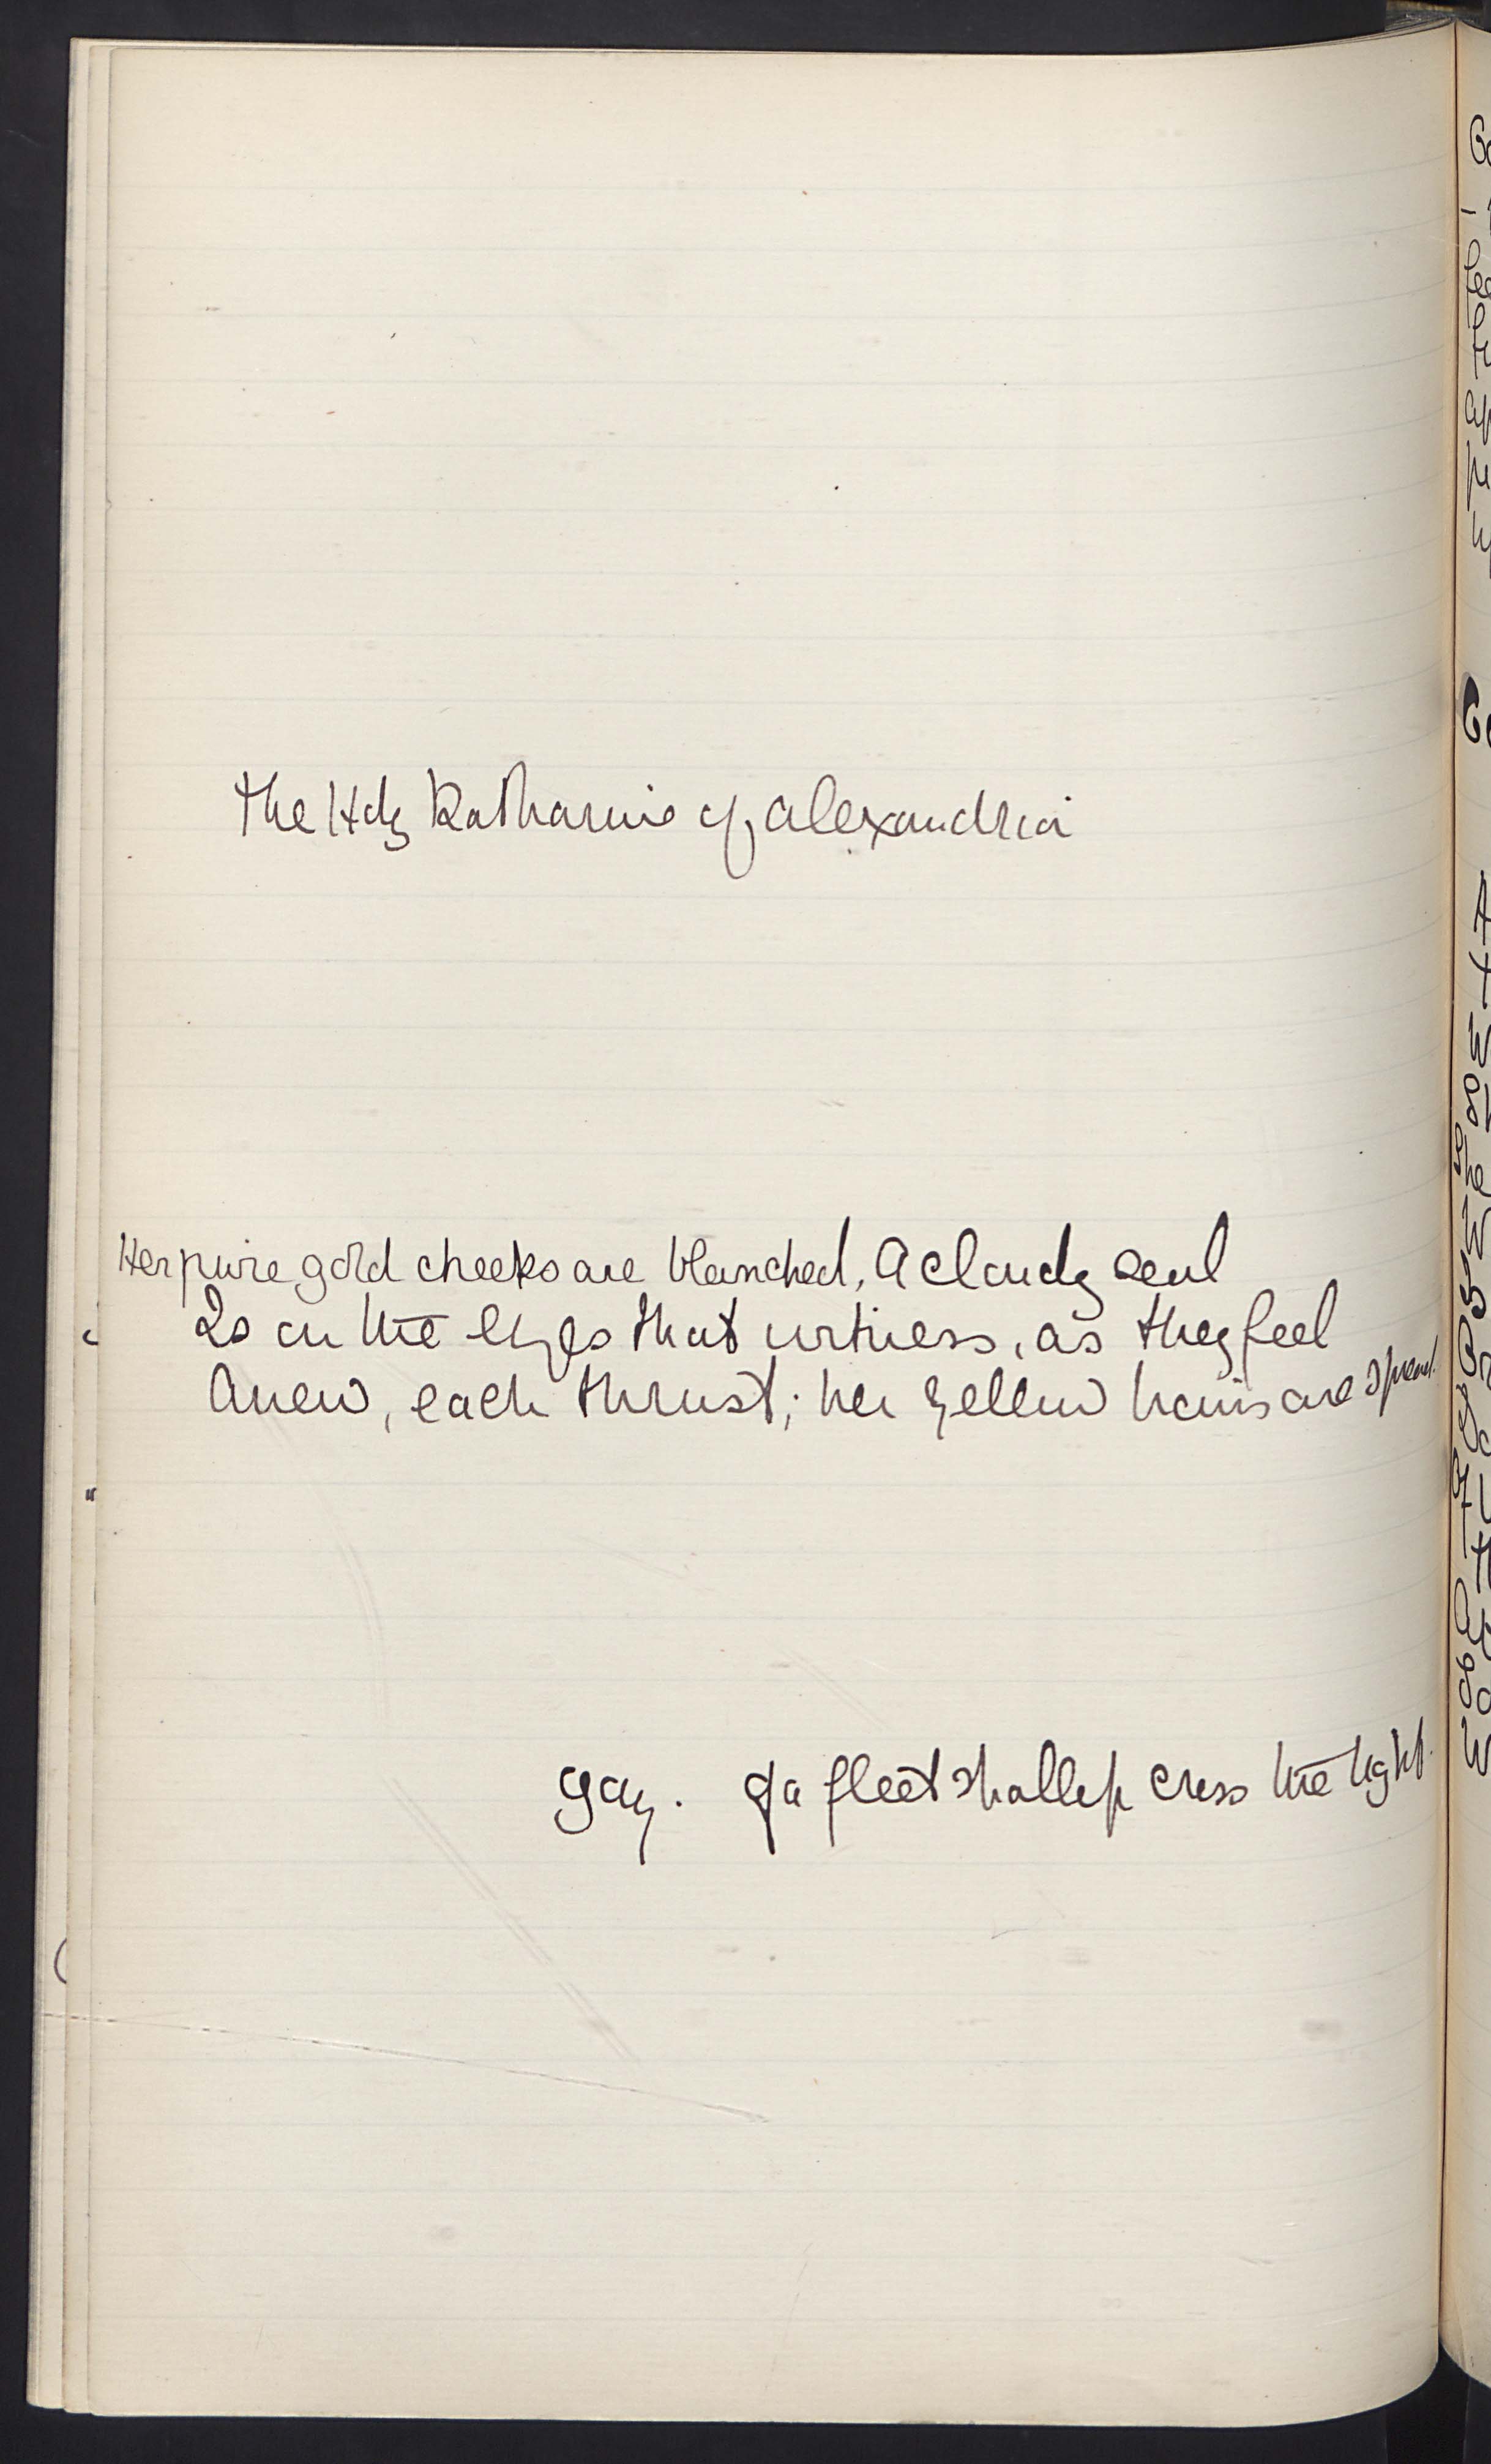 The Holy Katharine of Alexandria
Her pure gold cheeks are blanched, a cloudy seal
Is on the eyes that witness, as they feel
Anew, each thrust; her yellow hairs are spread.
gay. If a fleet shallop cross the light.